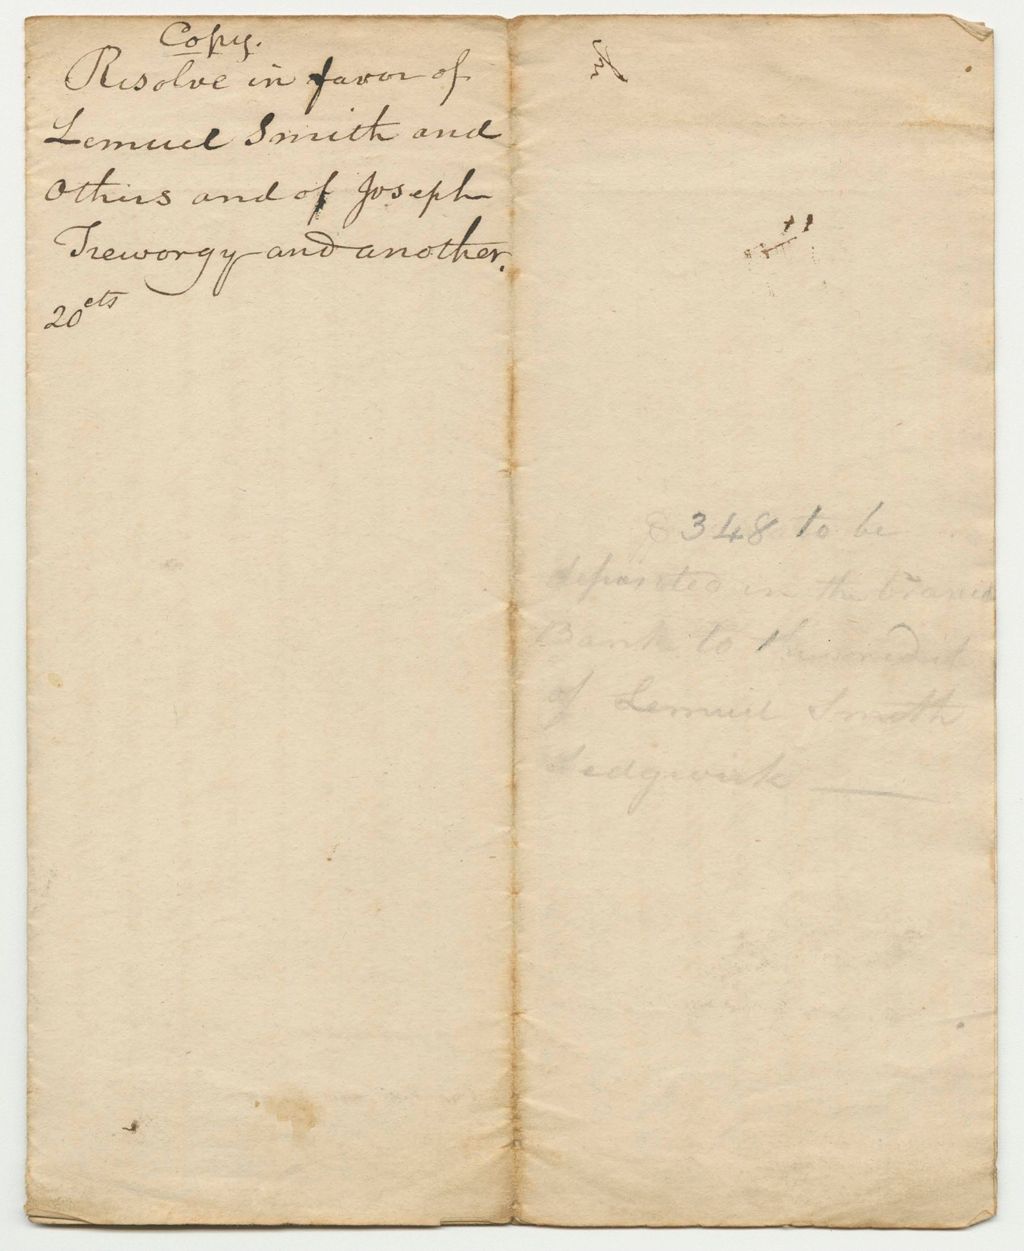 Copy.
Resolve in favor of
Lemuel Smith and
Others and of Joseph
Treworgy and another.
20 cts
$348 to be
deposited in the
Bank to the credit
of Lemuel Smith
Sedgwick